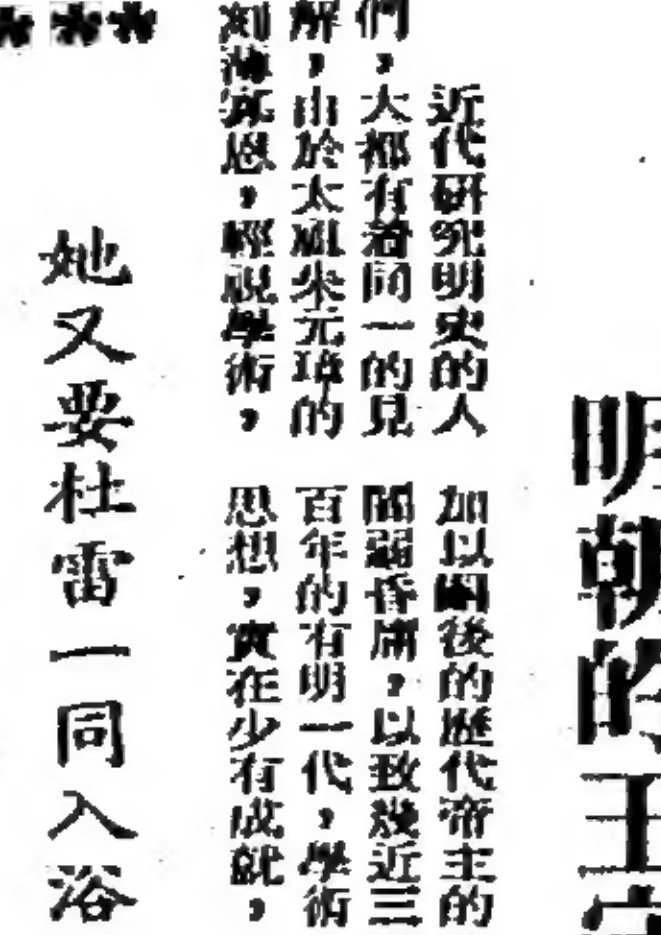 明朝的王
近代研究明史的人
們，大都有着同一的見
解，由於太祖朱元璋的
刻薄寡恩，輕視學術，
加以嗣後的歷代帝主的
闇弱昏庸，以致幾近三
百年的有明一代，學術
思想，實在少有成就，
她又要杜雷一同入浴